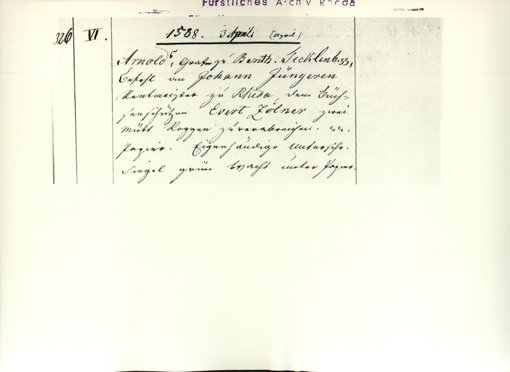 Fürstliches Archiv Rheda
326 VI. 1588. 3 Aprils (april)
Arnold, Graf zu Benth. Tecklenb. ss,
Befehl an Johann Jüngeren
Rentmeister zu Rheda dem Büch-
senschützen Evert Zölner zwei
Mütt Roggen zu verabreichen.
Papier. Eigenhändige Unterschr.
Siegel grün Wachs unter Papier.